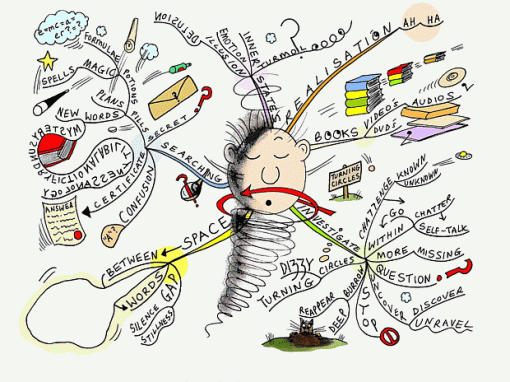 e=mc=a=
er?o?
FORMULAE
SPELLS
MAGIC
PLANS
POTIONS
PILLS
SECRET
NEW WORDS
CERTIFICATE
CONFUSION
ANSWER
SEARCHING
DELUSION
ILLUSION
EMOTION
INNER STATES
TURMOIL
REALISATION
AH HA
BOOKS
VIDEO'S
DVD'S
AUDIOS
TURNING
CIRCLES
CHALLENGE
KNOWN
UNKNOWN
INVESTIGATE
GO
WITHIN
CHATTER
SELF-TALK
MORE
MISSING
QUESTION
UNCOVER
DISCOVER
UNRAVEL
STOP
BURROW
DEEP
REAPPEAR
DIZZY
TURNING
CIRCLES
SPACE
BETWEEN
WORDS
GAP
SILENCE
STILLNESS